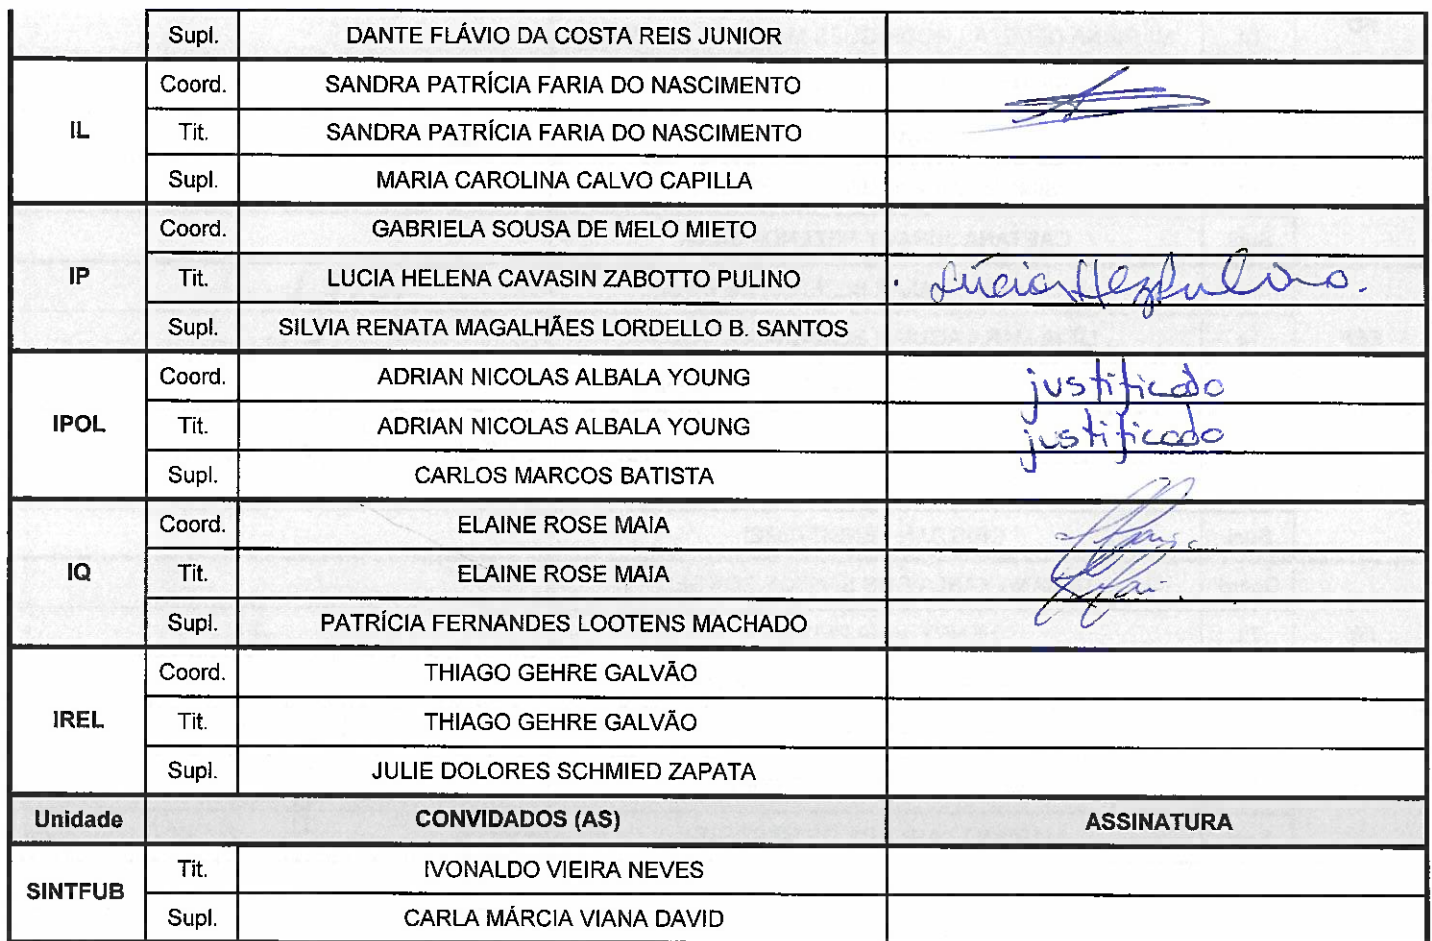 Supl. DANTE FLÁVIO DA COSTA REIS JUNIOR
IL Coord. SANDRA PATRÍCIA FARIA DO NASCIMENTO
Tit. SANDRA PATRÍCIA FARIA DO NASCIMENTO
Supl. MARIA CAROLINA CALVO CAPILLA
IP Coord. GABRIELA SOUSA DE MELO MIETO
Tit. LUCIA HELENA CAVASIN ZABOTTO PULINO Lúcia
Supl. SILVIA RENATA MAGALHÃES LORDELLO B. SANTOS
IPOL Coord. ADRIAN NICOLAS ALBALA YOUNG justificado
Tit. ADRIAN NICOLAS ALBALA YOUNG justificado
Supl. CARLOS MARCOS BATISTA
IQ Coord. ELAINE ROSE MAIA
Tit. ELAINE ROSE MAIA
Supl. PATRÍCIA FERNANDES LOOTENS MACHADO
IREL Coord. THIAGO GEHRE GALVÃO
Tit. THIAGO GEHRE GALVÃO
Supl. JULIE DOLORES SCHMIED ZAPATA
Unidade CONVIDADOS (AS) ASSINATURA
SINTFUB Tit. IVONALDO VIEIRA NEVES
Supl. CARLA MÁRCIA VIANA DAVID